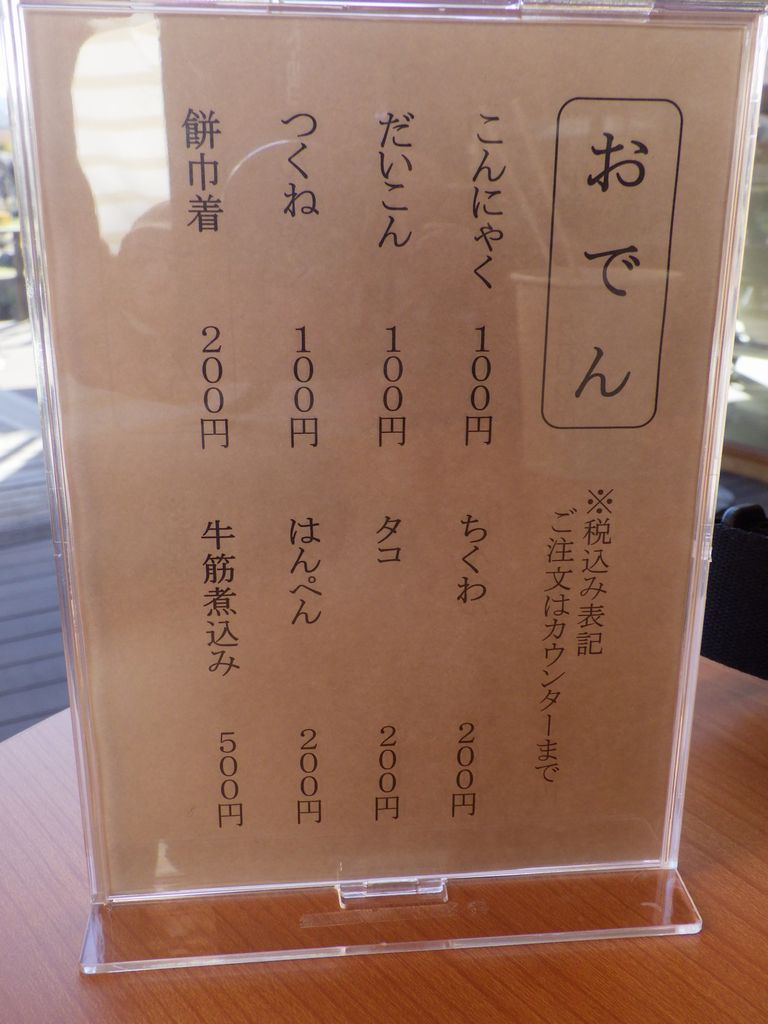 おでん
※税込み表記
ご注文はカウンターまで
こんにゃく 100円
ちくわ 200円
だいこん 100円
タコ 200円
つくね 100円
はんぺん 200円
餅巾着 200円
牛筋煮込み 500円